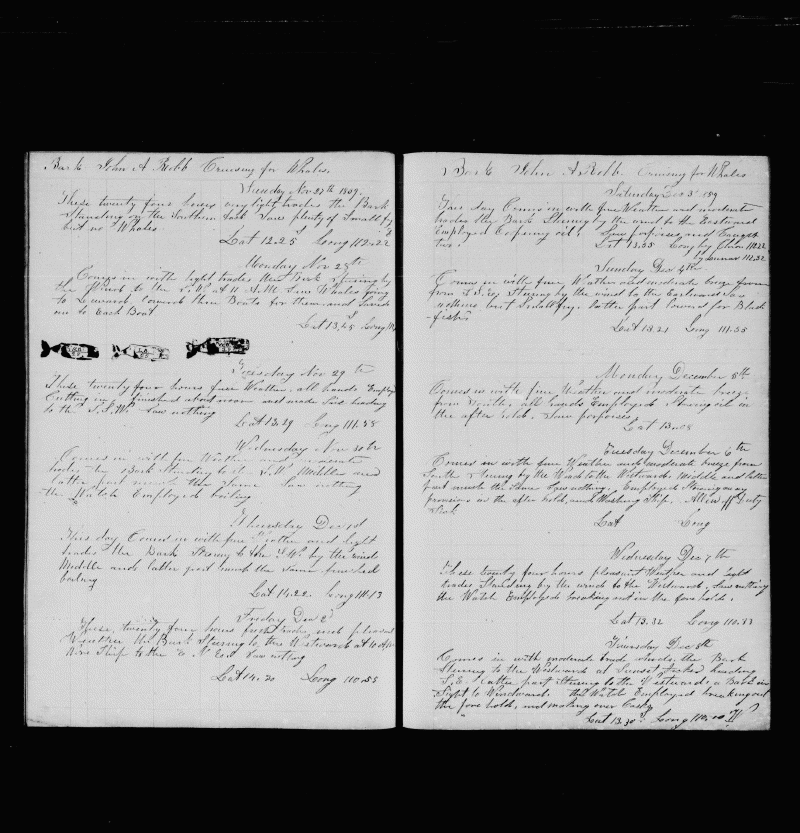 Bark John A Robb Cruising for Whales.
Sunday Nov 27th 1859.
These twenty four hours very light trades the Bark
Standing on the Southern Tack Saw plenty of Small fry
but no Whales.
Lat 12.25 Long 112.22
Monday Nov 28th
Comes in with light trades the Bark Stearing by
the Wind to the S.W. at 11 A.M. Saw Whales going
to Leeward, lowered three Boats for them and
one to Each Boat
Lat 13.45 Long
Tuesday Nov 29th
These twenty four hours fine Weather, all hands Employed
Cutting in, finished about noon and made Sail heading
to the S.S.W. Saw nothing
Lat 13.39 Long 111.58
Wednesday Nov 30th
Comes in with fine Weather and moderate
trades the Bark Standing to the S.W. Middle and
latter part much the Same Saw nothing
the Watch Employed boiling
Thursday Dec 1st
This day Comes in with fine Weather and light
trades the Bark Stearing to the S.W. by the wind
Middle and latter part much the same finished
boiling
Lat 14.22 Long 111.13
Friday Dec 2d
These twenty four hours fresh trades and pleasant
Weather the Bark Stearing to the Westward at 10 A.M.
Wore Ship to the E N East Saw nothing
Lat 14.20 Long 110.55
Bark John A Robb. Cruising for Whales
Saturday Dec 3d 1859
This day Comes in with fine Weather and moderate
trades the Bark Stearing by the wind to the Eastward
Employed Coopering oil. Saw porpoises and Caught
two.
Lat 13.55 Long by Chro 112.22
by Lunar 111.32
Sunday Dec 4th
Comes in with fine Weather and moderate breeze from
from S.S.E. Stearing by the wind to the Eastward Saw
nothing but Small fry. Latter part lowered for Black
fish
Lat 13.21 Long 111.35
Monday December 5th
Comes in with fine Weather and moderate breeze
from South, all hands Employed Stowing oil in
the after hold. Saw porpoises.
Lat 13.08
Tuesday December 6th
Comes in with fine Weather and moderate breeze from
South Stearing by the Wind to the Westward. Middle and latter
part much the Same Saw nothing. Employed Stowing away
provisions in the after hold, and Washing Ship. Allen off Duty
Sick
Lat Long
Wednesday Dec 7th
These twenty four hours pleasant Weather and light
trades Standing by the wind to the Westward, Saw nothing
the Watch Employed breaking out in the fore hold.
Lat 13.32 Long 110.33
Thursday Dec 8th
Comes in with moderate trade winds, the Bark
Stearing to the Westward at Sunset Tacked heading
S.E. Latter part Stearing to the Westward, a Bark in
Sight to Windward. the Watch Employed breaking out
the fore hold, and making over Casks
Lat 13.30 Long 110.